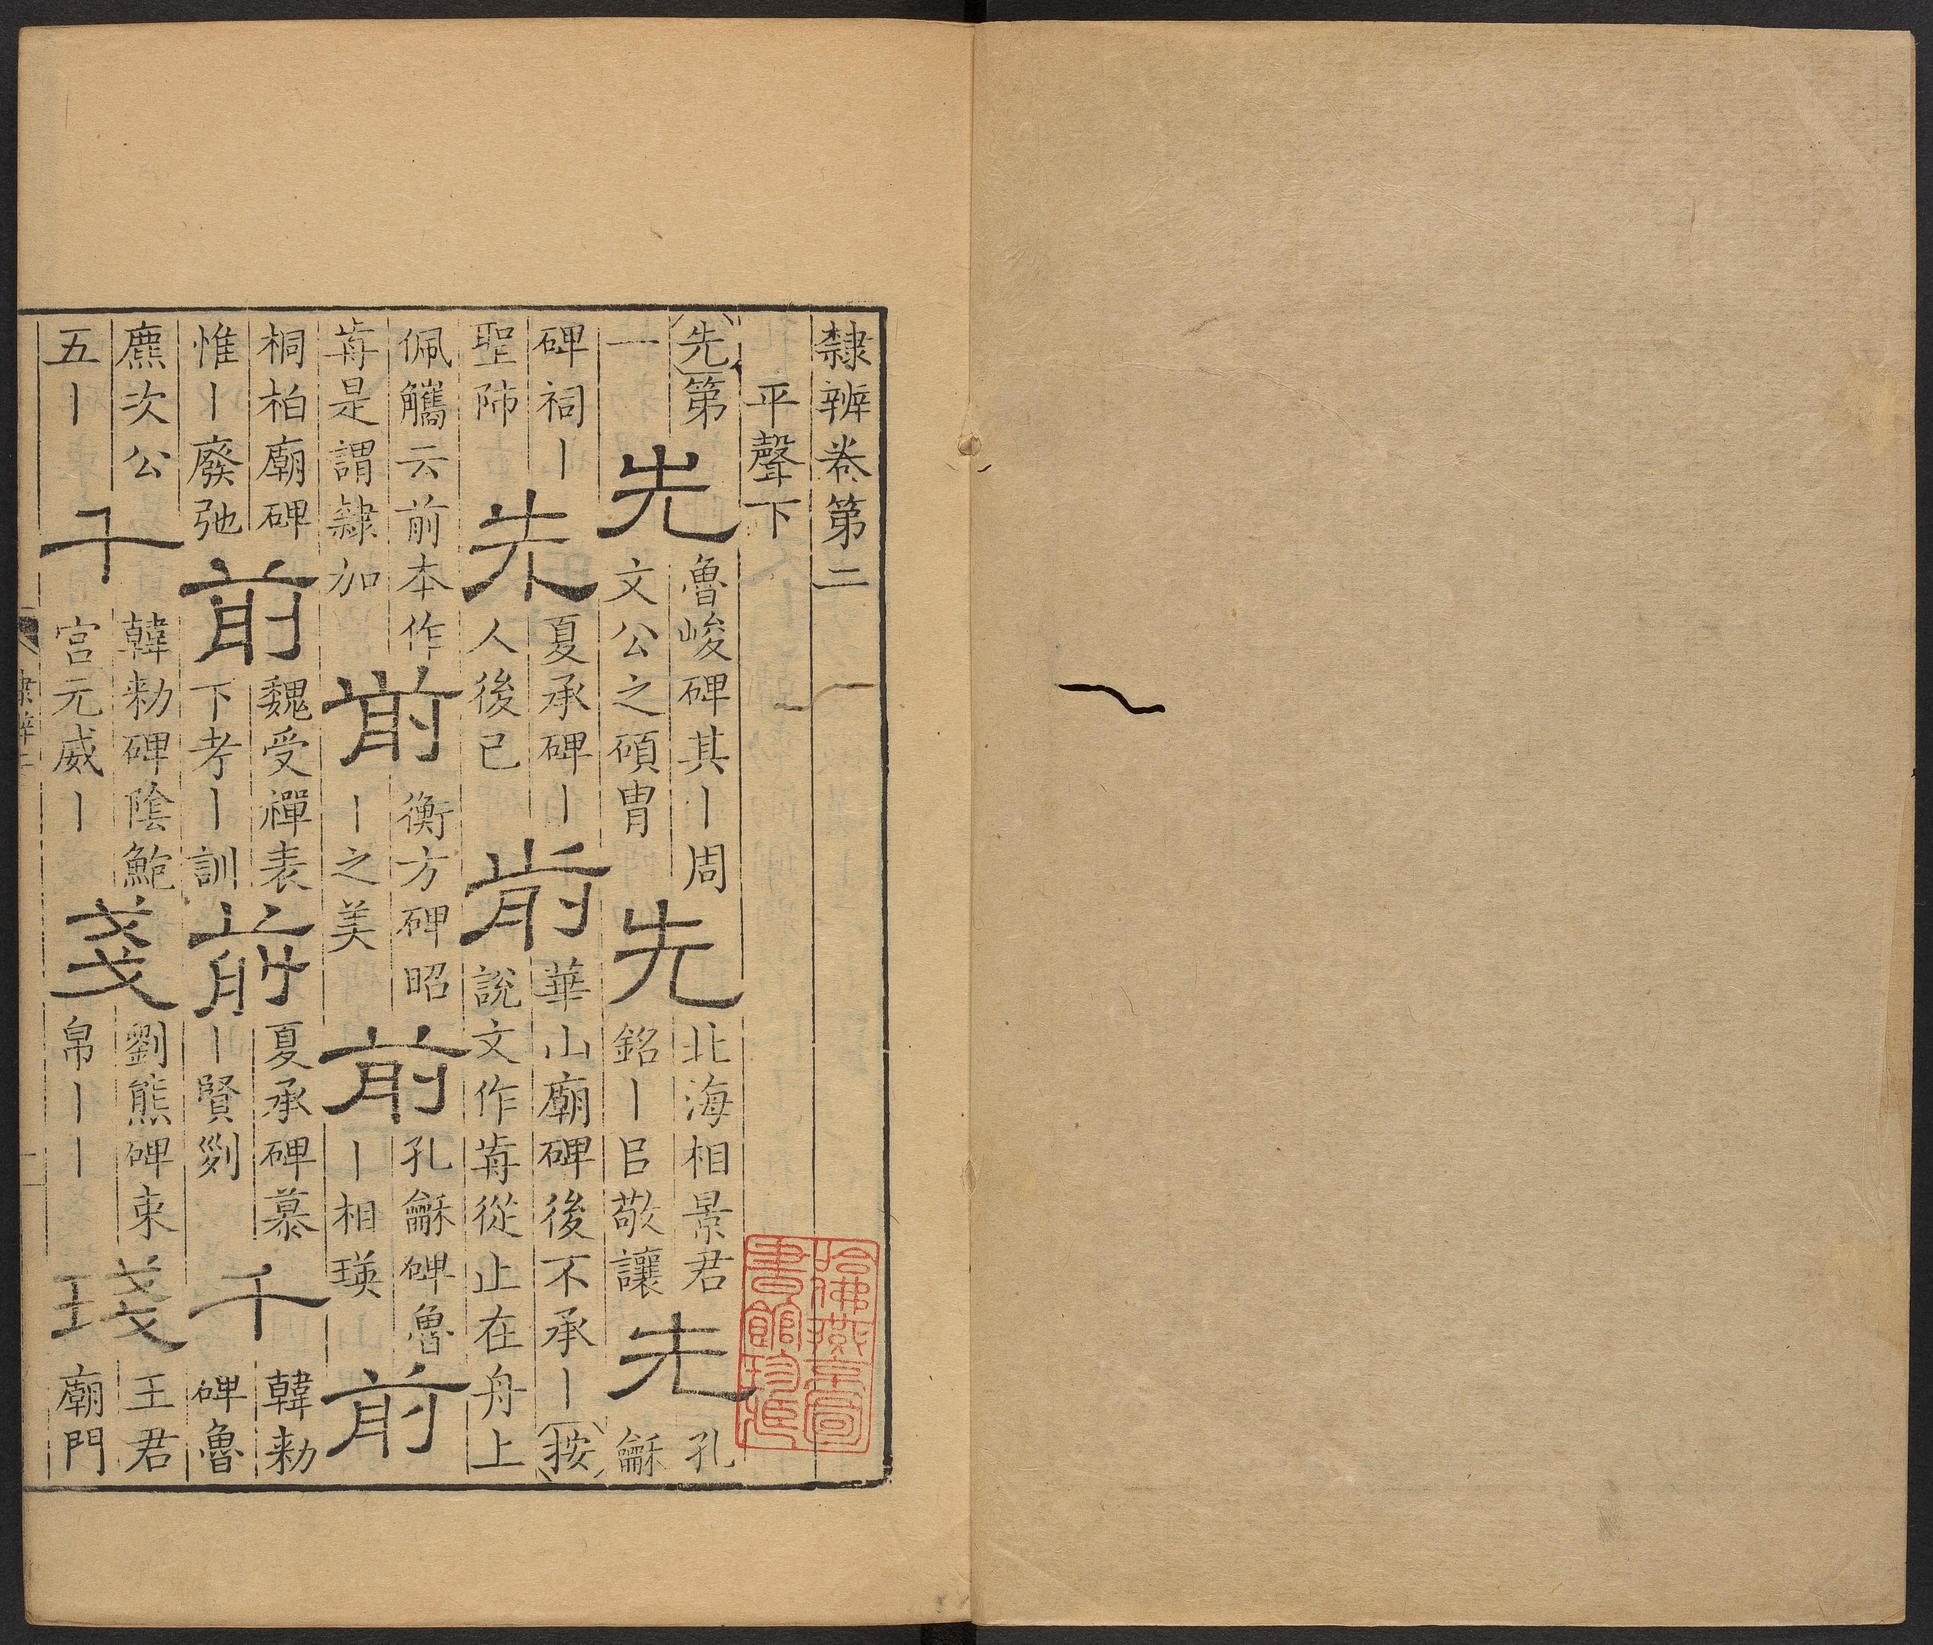 隸辨卷第二
平聲下
先第一 先 魯峻碑其丨周文公之碩冑 先 北海相景君銘丨㠯敬讓 先 孔龢
碑祠丨聖師 先 夏承碑丨人後己 前 華山廟碑後不承丨按說文作歬從止在舟上
佩觿云前本作歬是謂隸加 前 衡方碑昭丨之美 前 孔龢碑魯丨相瑛 前
桐柏廟碑惟丨廢弛 前 魏受禪表下考丨訓 前 夏承碑慕丨賢剡 千 韓勑碑魯
麃次公五丨 千 韓勑碑陰鮑宮元威丨 戔 劉熊碑束帛丨丨 琖 王君廟門
哈佛燕京圖
書館珍藏